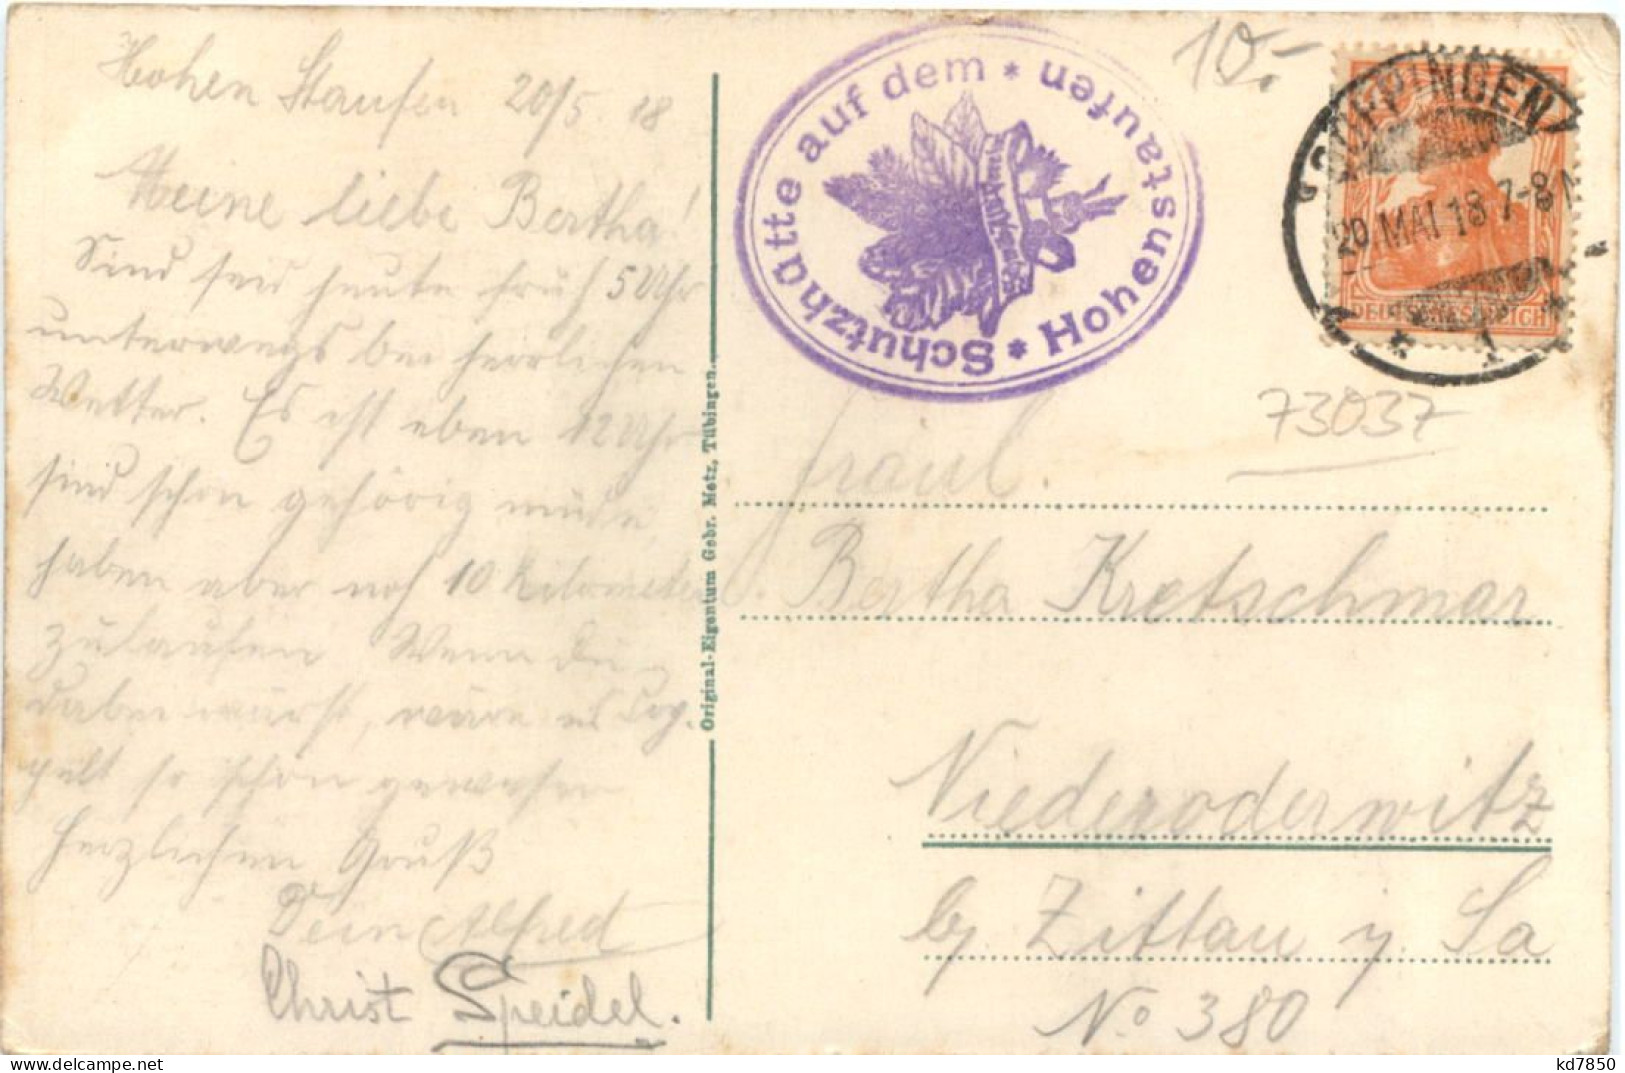 Hohen Staufen 20/5. 18
Meine liebe Bertha!
Sind seid heute früh 5 Uhr
unterwegs bei herrlichen
Wetter. Es ist eben 12 Uhr
sind schon gehörig müde
haben aber noch 10 Kilometer
zulaufen Wenn du
dabei wärst, wäre es
so schön gewesen
Herzlichen Gruß
Dein Alfred
Christ Speidel.
Original-Eigentum Gebr. Metz, Tübingen.
Schutzhütte auf dem * Hohenstaufen *
10.-
GÖPPINGEN
20. MAI 18 7-8 N
* 1 *
DEUTSCHES REICH
73037
Fräul.
Bertha Kretschmar
Niederoderwitz
b/ Zittau i. Sa
No 380
kd7850